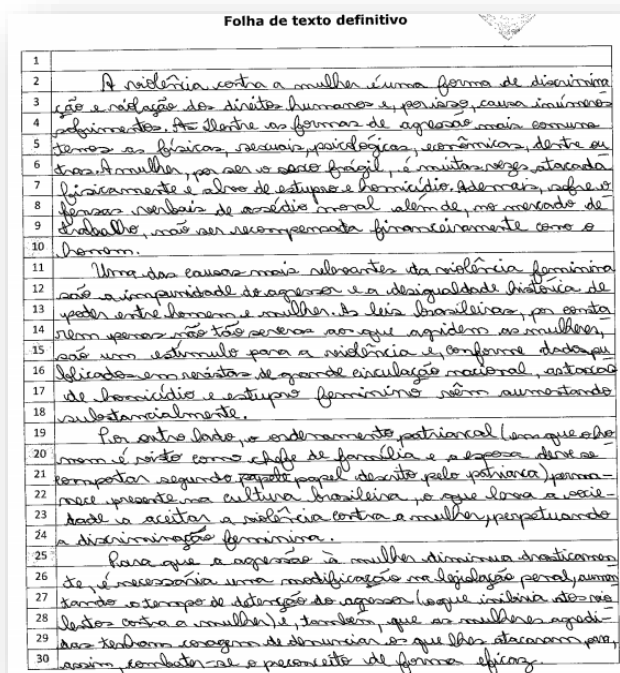 Folha de texto definitivo
1
2 A violência contra a mulher é uma forma de discrimina
3 ção e violação dos direitos humanos e, por isso, causa inúmeros
4 sofrimentos. As dentre as formas de agressão mais comuns
5 temos as físicas, sexuais, psicológicas, econômicas, dentre ou
6 tras. A mulher, por ser o sexo frágil, é muitas vezes atacada
7 fisicamente e alvo de estupro e homicídio. Ademais, sofre o
8 fensas verbais de assédio moral além de, no mercado de
9 trabalho, não ser recompensada financeiramente como o
10 homem.
11 Uma das causas mais relevantes da violência feminina
12 são a impunidade do agressor e a desigualdade histórica de
13 poder entre homem e mulher. As leis brasileiras, por consta
14 rem penas não tão severas aos que agridem as mulheres,
15 são um estímulo para a violência e, conforme dados pu
16 blicados em revistas de grande circulação nacional, as taxas
17 de homicídio e estupro feminino vêm aumentando
18 substancialmente.
19 Por outro lado, o ordenamento patriarcal (em que o ho
20 mem é visto como chefe de família e a esposa deve se
21 comportar segundo papel descrito pelo patriarca) perma-
22 nece presente na cultura brasileira, o que leva a socie-
23 dade a aceitar a violência contra a mulher, perpetuando
24 a discriminação feminina.
25 Para que a agressão à mulher diminua drasticamen
26 te, é necessária uma modificação na legislação penal, aumen
27 tando o tempo de detenção do agressor (o que inibiria atos vio
28 lentos contra a mulher) e, também, que as mulheres agredi-
29 das tenham coragem de denunciar os que lhes atacaram para,
30 assim, combater-se o preconceito de forma eficaz.